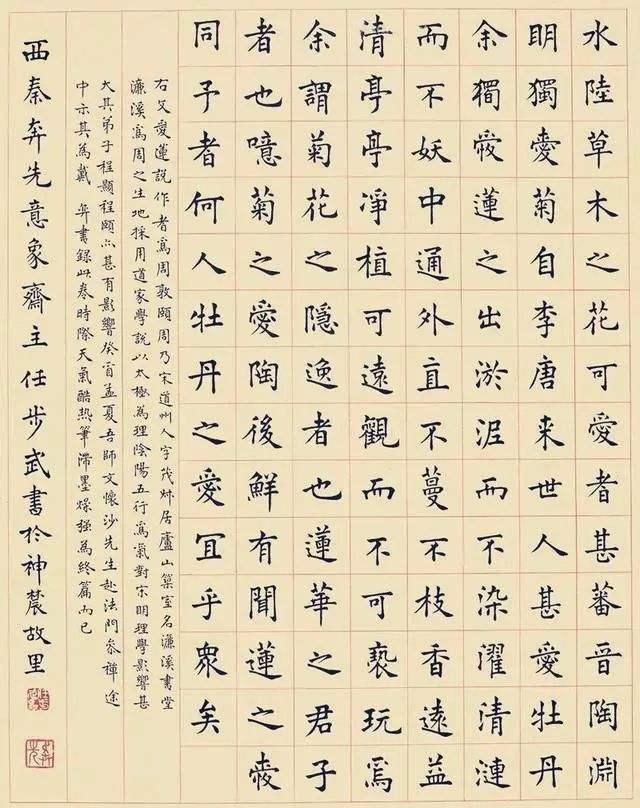 水陸草木之花可愛者甚蕃晉陶淵
明獨愛菊自李唐来世人甚愛牡丹
余獨愛蓮之出淤泥而不染濯清漣
而不妖中通外直不蔓不枝香遠益
清亭亭凈植可遠觀而不可褻玩焉
余謂菊花之隱逸者也蓮華之君子
者也噫菊之愛陶後鮮有聞蓮之愛
同予者何人牡丹之愛宜乎眾矣
右文愛蓮説作者寫周敦頤周乃宋道州人字茂叔居廬山築室名濂溪書堂
濂溪寫周之生地採用道家學説以太極為理陰陽五行寫氣對宋明理學影響甚
大其弟子程顥程頤亦甚有影響癸酉孟夏吾師文懷沙先生赴法門參禪途
中示其為戴 書録此卷時際天氣酷热筆滯墨燥强為終篇而已
西秦奔先意象齋主任步武書於神農故里